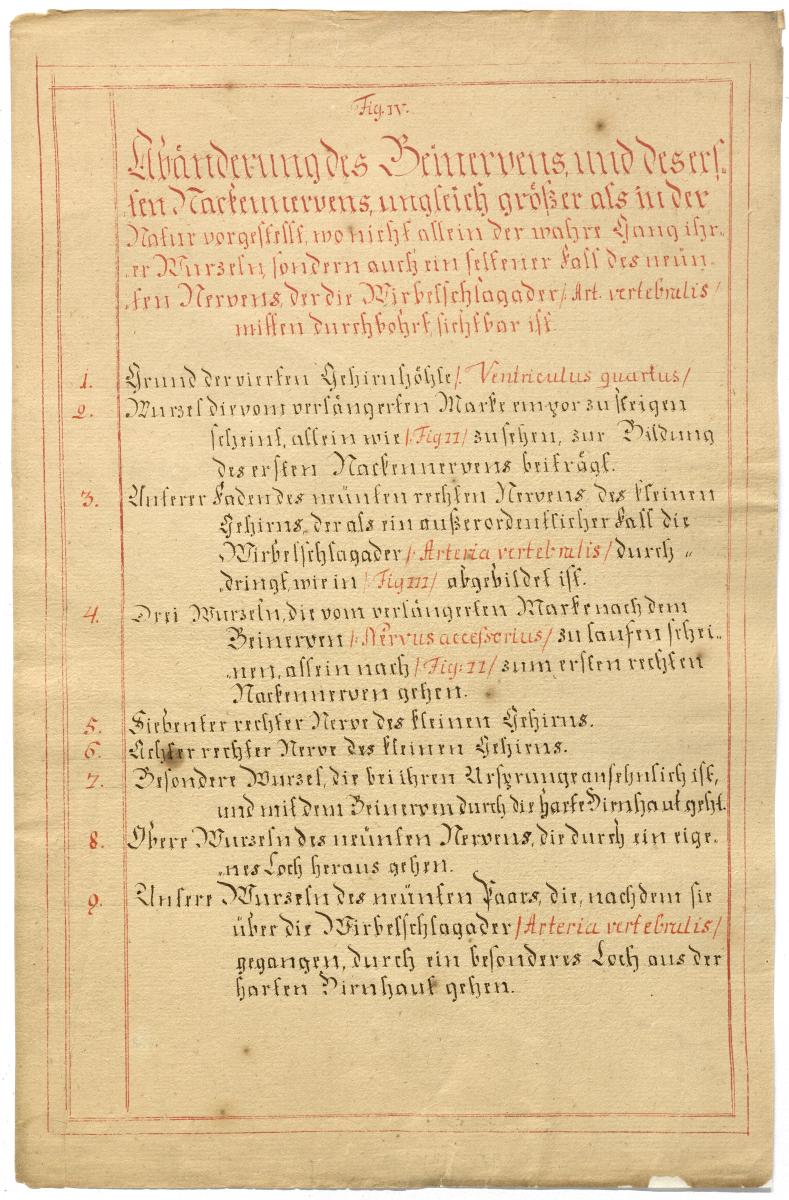 Fig. IV.
Abänderung des Beinervens, und des ers„
„ten Nackennervens, ungleich größer als in der
Natur vorgestellt, wo nicht allein der wahre Gang ihr„
„er Wurzeln, sondern auch ein seltener Fall des neün„
„ten Nervens, der die Wirbelschlagader /: Art. vertebralis /
mitten durchbohrt, sichtbar ist.
1. Grund der vierten Gehirnhöhle /: Ventriculus quartus /
2. Wurzel die vom verlängerten Marke empor zu steigen
scheint, allein wie /: Fig II / zu sehen, zur Bildung
des ersten Nackennervens beiträgt.
3. Unterer Faden des neünten rechten Nervens des kleinen
Gehirns, der als ein außerordentlicher Fall die
Wirbelschlagader /: Arteria vertebralis / durch „
„dringt, wie in /: Fig III / abgebildet ist.
4. Drei Wurzeln, die vom verlängerten Marke nach dem
Beinerven /: Nervus accessorius / zu laufen schei„
„nen, allein nach /: Fig: II / zum ersten rechten
Nackennerven gehen.
5. Siebenter rechter Nerve des kleinen Gehirns.
6. Achter rechter Nerve des kleinen Gehirns.
7. Besondere Wurzel, die bei ihren Ursprunge ansehnlich ist,
und mit dem Beinerven durch die harte Hirnhaut geht.
8. Obere Wurzeln des neünten Nervens, die durch ein eige„
„nes Loch heraus gehen.
9. Untere Wurzeln des neünten Paars, die, nachdem sie
über die Wirbelschlagader /: Arteria vertebralis /
gegangen, durch ein besonderes Loch aus der
harten Hirnhaut gehen.